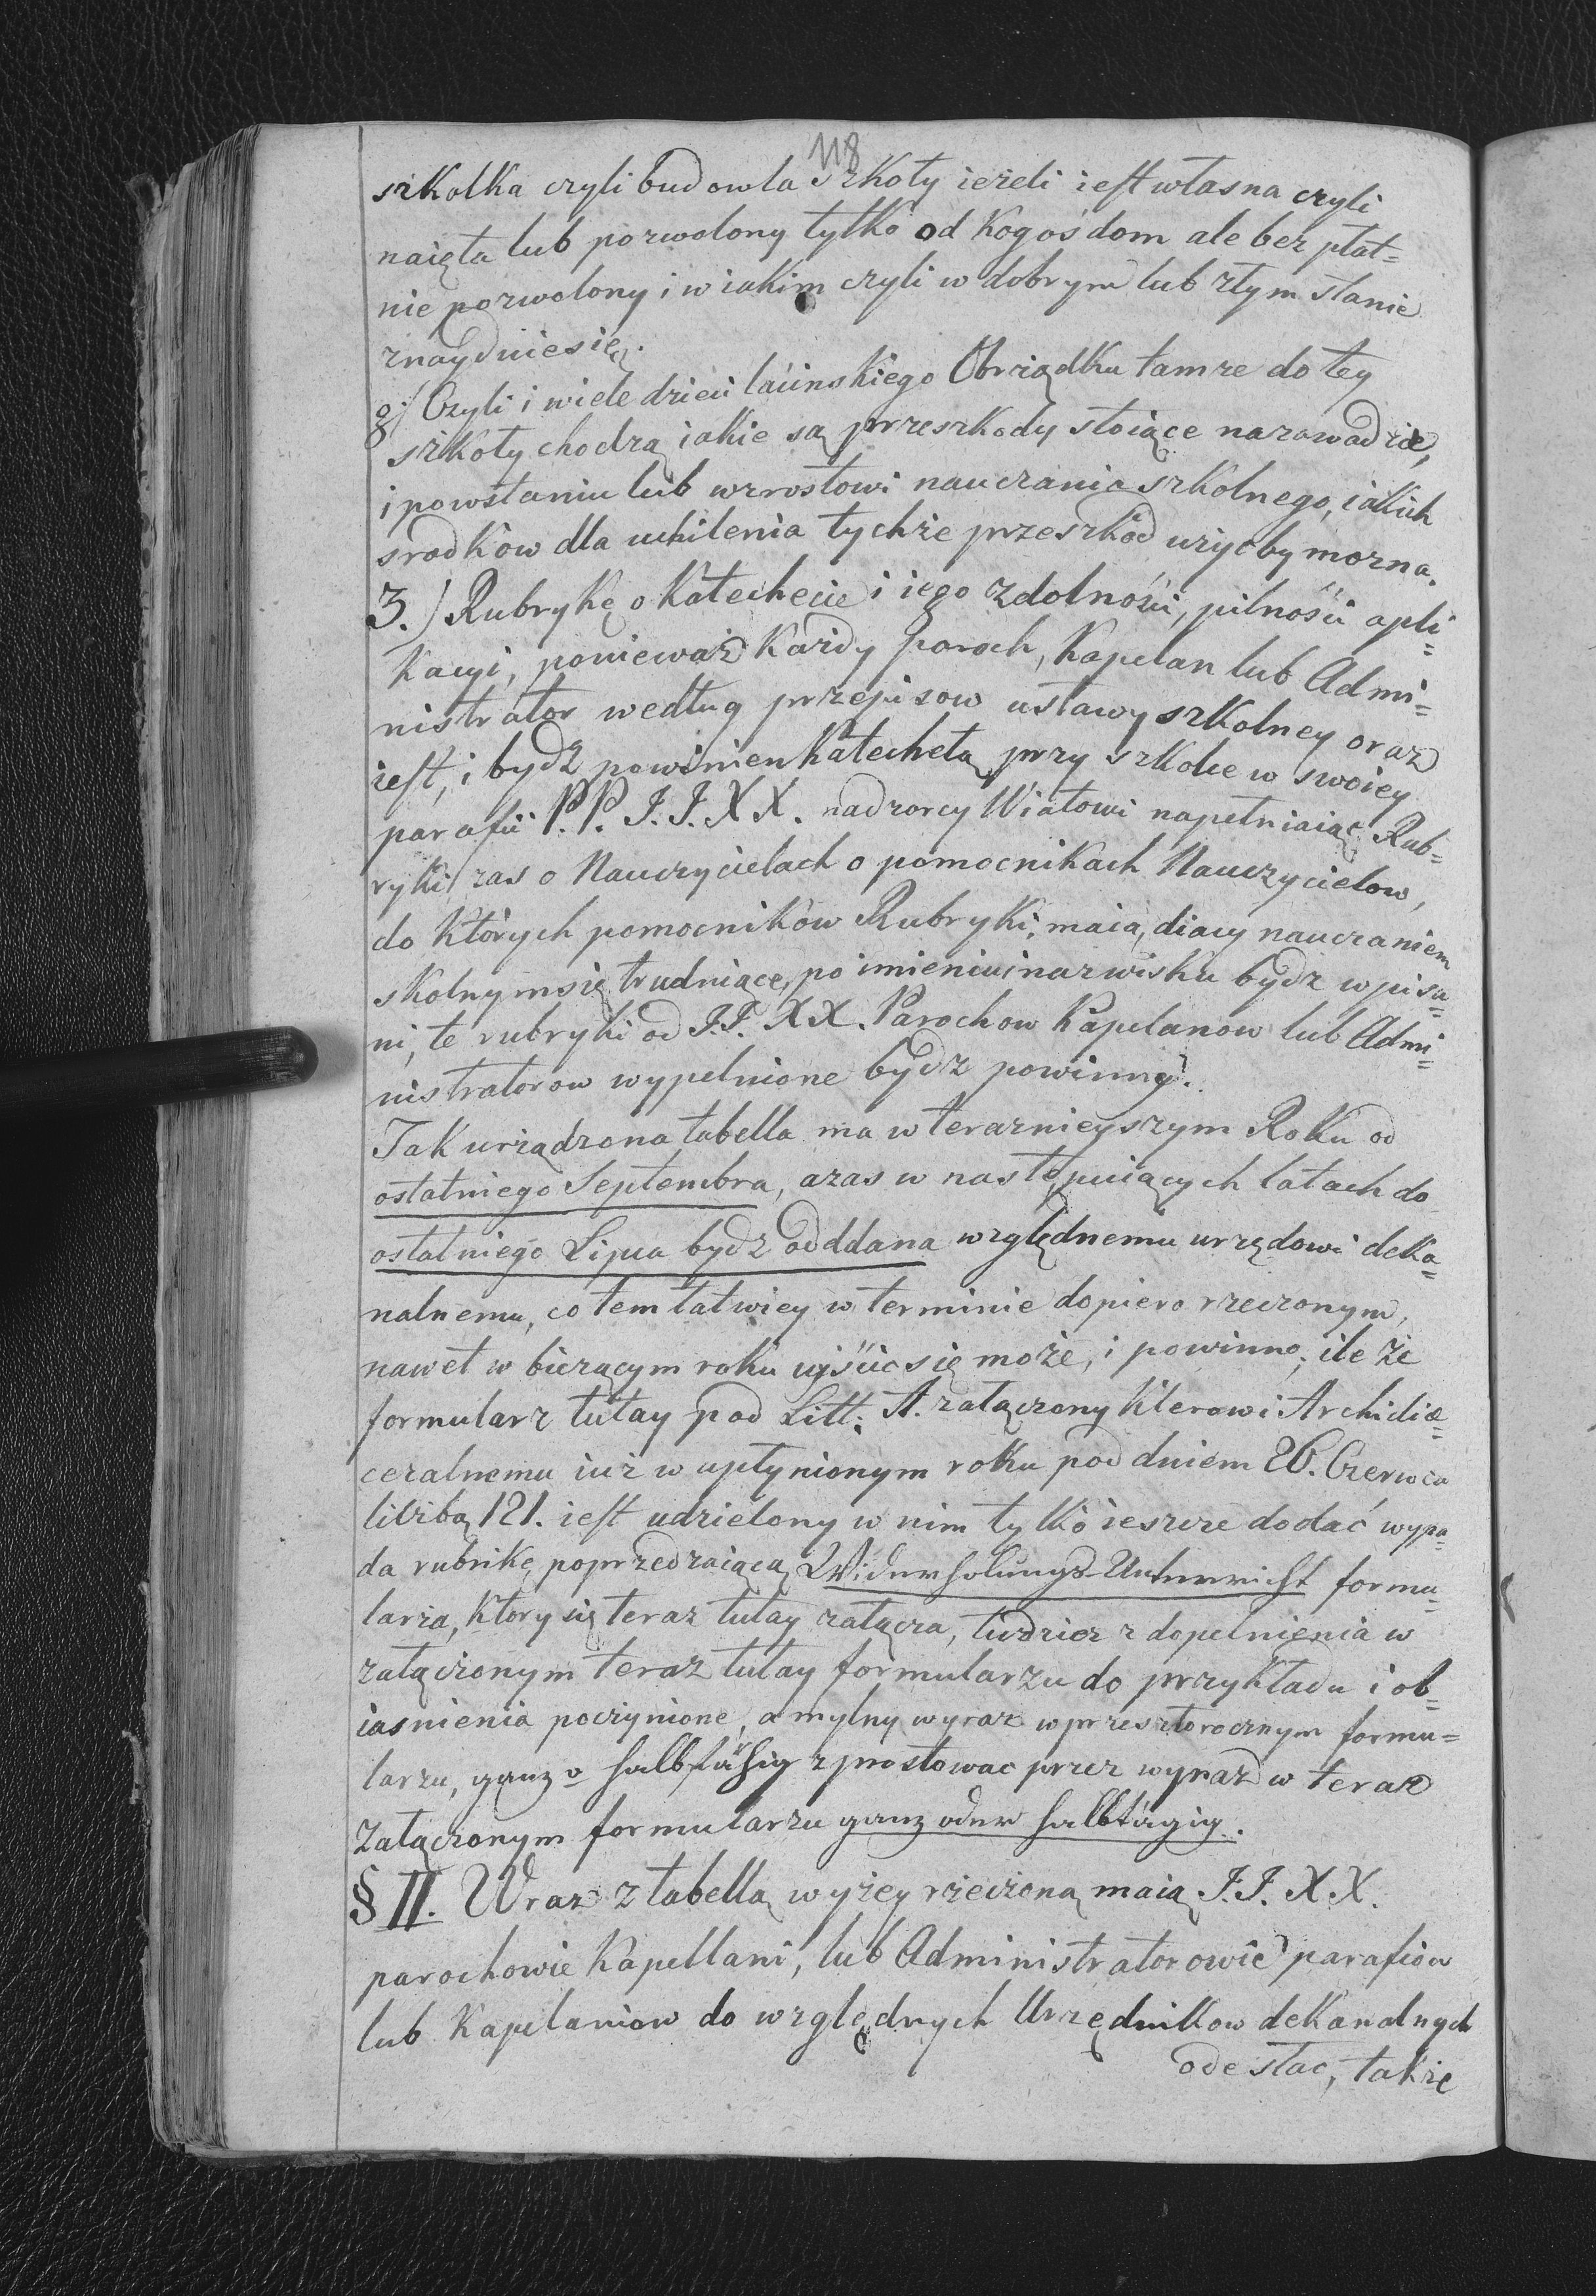 118
szkolka czyli budowla Szkoły ieżeli iest własna czyli
naięta lub pozwolony tylko od kogoś dom ale bez płat=
nie pozwolony i w iakim czyli w dobrym lub złym stanie
znayduiesię.
g./ Czyli i wiele dzieci łacinskiego Obrządku tamże do tey
szkoły chodzą iakie są przeszkody stoiące nazawadzie,
i powstaniu lub wzrostowi nauczania szkolnego, iakich
srodków dla uchilenia tychże przeszkod użycby mozna.
3.) Rubrykę o Katechecie i iego zdolności, pilności apli=
kacyi, ponieważ Każdy Paroch, Kapelan lub Admi=
nistrator według przepisow ustawy szkolney oraz
iest, i bydź powinien Katechetą przy szkołce w swoiey
parafii P.P. J.J. X X. nadzorcy Wiatowi napełniaiąc Rub=
ryki zas o Nauczycielach o pomocnikach Nauczycielow,
do których pomocników Rubryki, maią, diacy nauczaniem
skolnymsię trudniące, po imieniu i nazwisku bydz wpisa=
ni, te rubryki od J.J. XX. Parochow Kapelanow lub Admi=
nistratorow wypelnione bydz powinny.
Tak urządzona tabella ma w terazniejszym Roku od
ostatniego Septembra, azas w następuiących latach do
ostatniego Lipca bydz odddana względnemu urzędowi deka=
nalnemu, co tem łatwiey w terminie dopiero rzeczonym,
nawet w bieżącym roku ujścic się może, i powinno, ile że
formularz tutay pod Litt: A. załączony Klerowi Archidiæ=
cezalnemu iuż w upłynionym roku pod dniem 26. Czerwca
liczbą 121. iest udzielony w nim tylko ieszcze dodać wypa=
da rubrikę poprzedzaiącą Widerholungs-Unterricht formu=
larza, ktory się teraz tutay załącza, tudzież z dopelnienia w
załączonym teraz tutay formularzu do przykładu i ob=
iasnienia poczynione, a mylny wyraz w przeszłorocznym formu=
larzu, ganz o halbfähig zprostowac przez wyraz w teraz
załączonym formularzu ganz oder halbtägig.
§ II. Wraz z tabellą wyżey rzeczoną maią J.J. X X.
parochowie Kapellani, lub Administratorowie parafiow
lub Kapelaniow do względnych Urzędnikow dekanalnych
odesłac, także